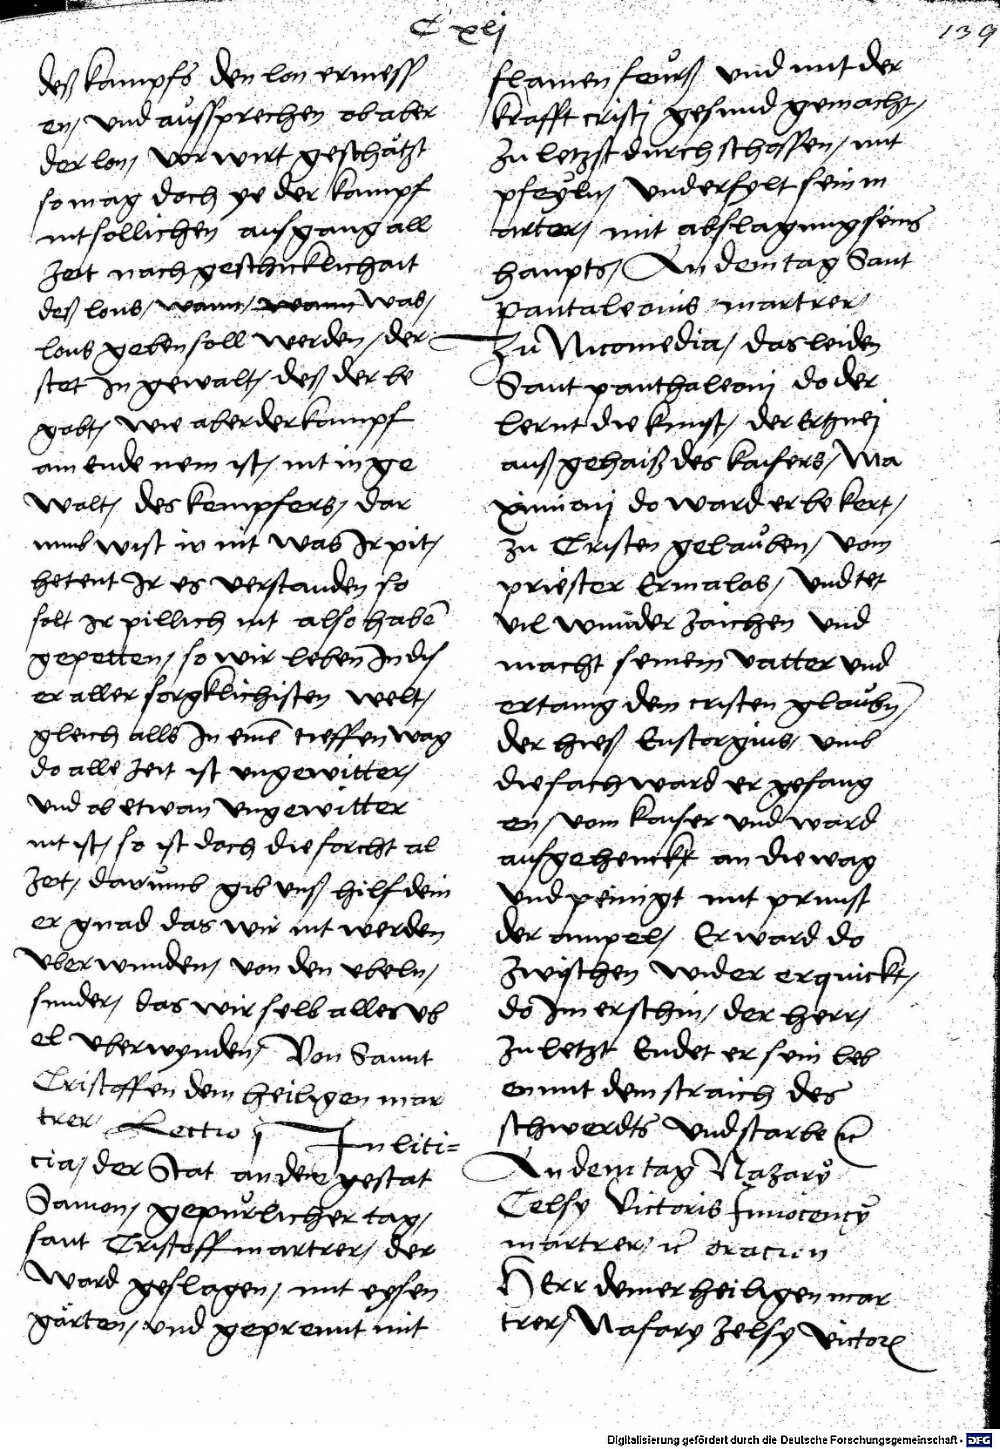 C xlj
139
deß kampfs den lon ermess
en / vnd aůssprechen ob aber
der lon / vor wirt geschätzt
so mag doch ye der kampf
mit sollichen ausgang all
Zeit nach geschicklichait
deß lons / was /
lons geben soll werden / der
stet In gewalt / deß der be
gabt / wie aber der kampf
am ende nem ist / nit in ge
walt / des kempfers / dar
umb wist ir nit was Ir pit /
hetent Ir es verstanden so
solt Ir pillich nit also habē
gepetten / so wir leben In dis
er aller sorgklichisten welt /
gleich alls In einē tieffen wag
do alle Zeit ist vngewitter /
vnd ob etwan vngewitter
nit ist / so ist doch die forcht al
Zeit / darůmb gib vnß hilf dein
er gnad das wir nit werden
vberwunden / von den vbeln /
sunder / das wir selb alles vb
el vberwynden / Von Sannt
Cristoffen dem heiligen mar
trer Lectio j In liti=
cia / der Stat an der gestat
Samon / gepůrlicher tag /
sant Cristoff martrer / der
ward geslagen / mit eysen
gärten / vnd geprennt mit
flamen feůrß vnd mit der
krafft cristj gesund gemacht /
Zu letzst durch schossen / mit
pfeyln / vnd erfylt sein m
arter / mit abslagung seins
haupts / An dem tag Sant
Pantaleonis martrer
Zů Nicomedia / das leiden
Sant panthaleonj do der
lernt die kunst / der Ertznej
auß gehaiß des kaisers / Ma
ximianj do ward er bekert /
Zu Cristen gelaůben / vom
priester Ermalas / vnd tet
vil wunder Zaichen vnd
macht seinem vatter vnd
ertanig dem cristen glaůbn
der hies Eustorgius / vmb
die sach ward er gefang
en / vom kaiser vnd ward
aufgehenckt an die wag
vnd peinigt mit prunst
der ampel / Er ward do
Zwischen wider erquickt /
do Im erschin / der herr /
Zu letzt Endet er sein leb
en mit dem straich des
schwerdts vnd starbe ꝛc
An dem tag Nazarÿ
Celsy Victoris Innocencÿ
martrer ꝛc oracion
HErr deiner heiligen mar
trer / Nasary Zelsy victor
Digitalisierung gefördert durch die Deutsche Forschungsgemeinschaft - DFG